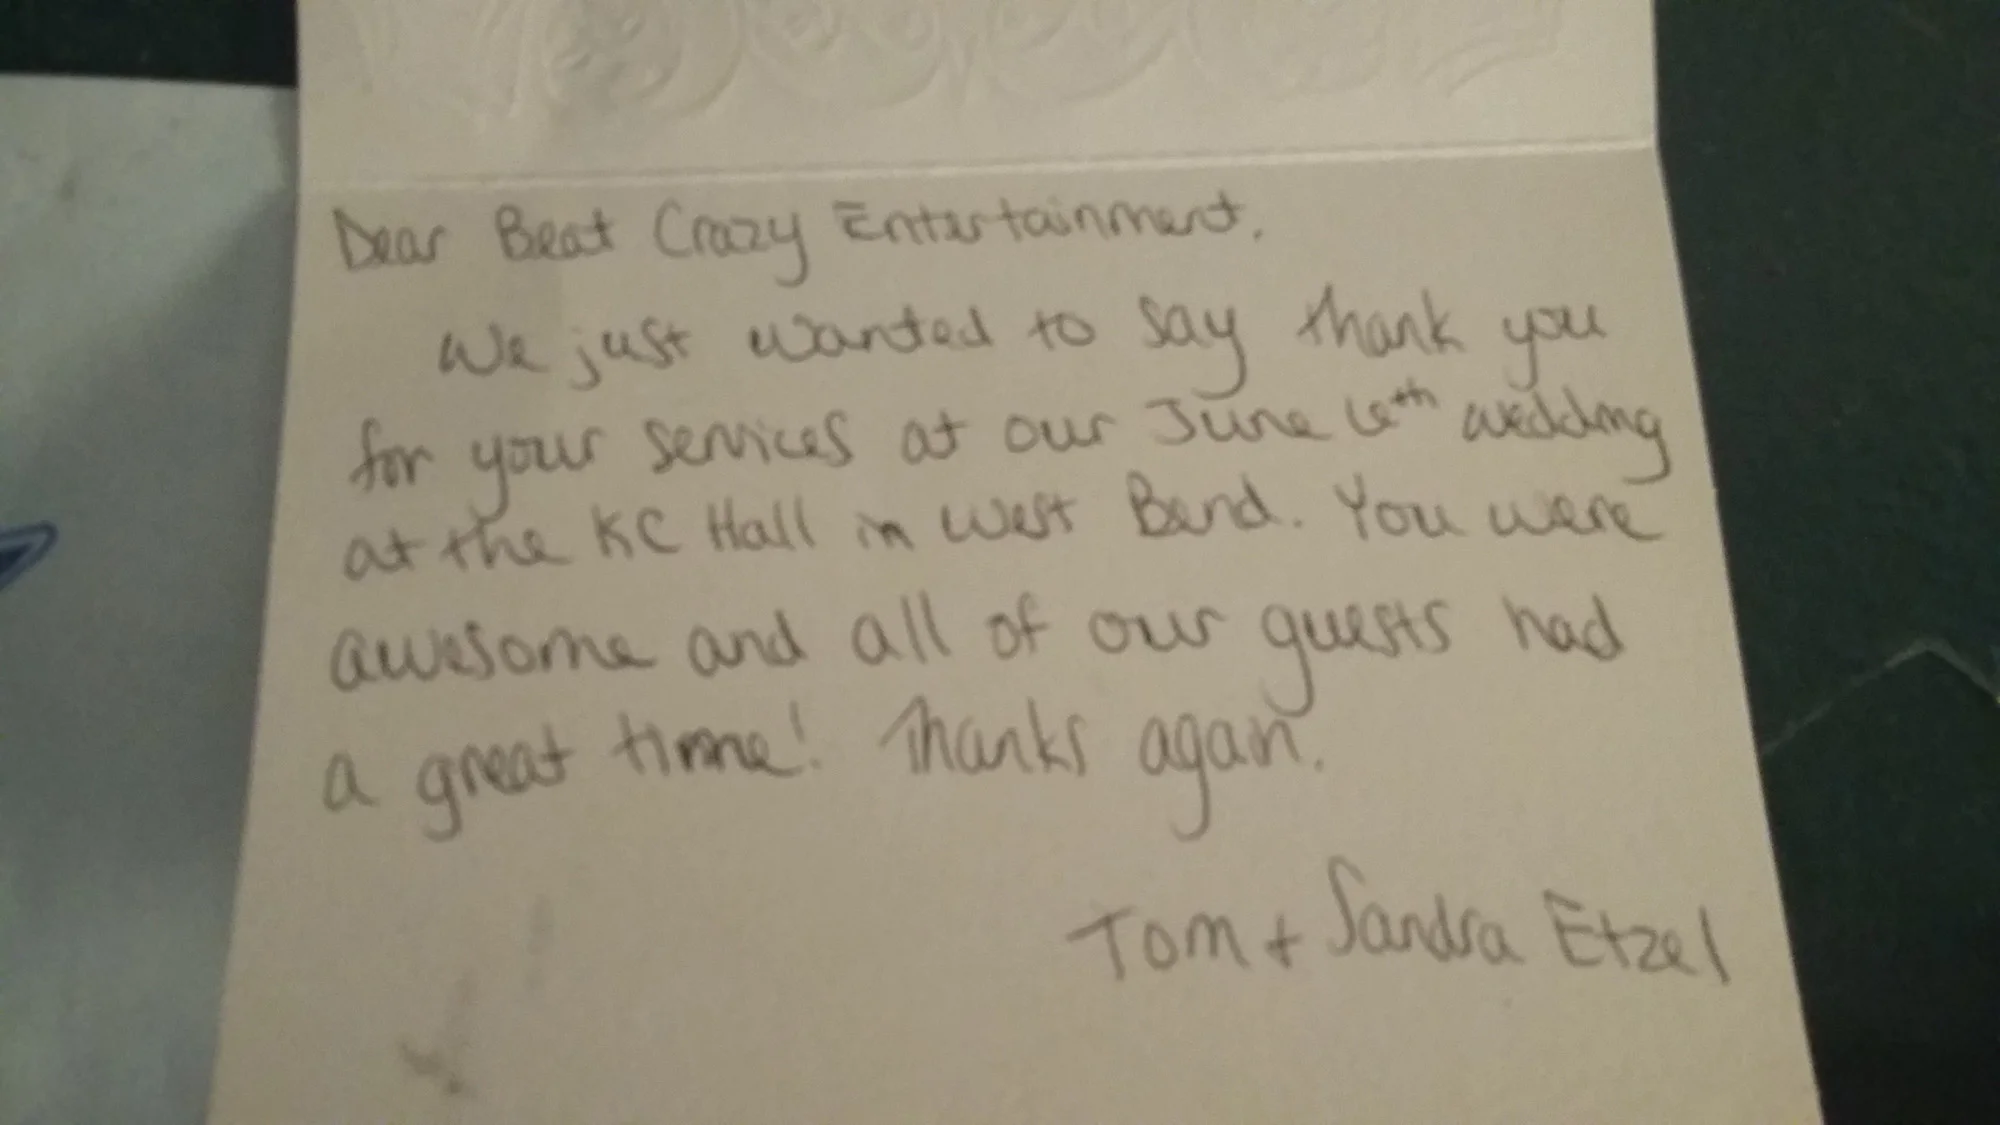 Dear Beat Crazy Entertainment.
We just wanted to say thank you
for your services at our June 6th wedding
at the KC Hall in West Bend. You were
awesome and all of our guests had
a great time! Thanks again.
Tom + Sandra Etzel